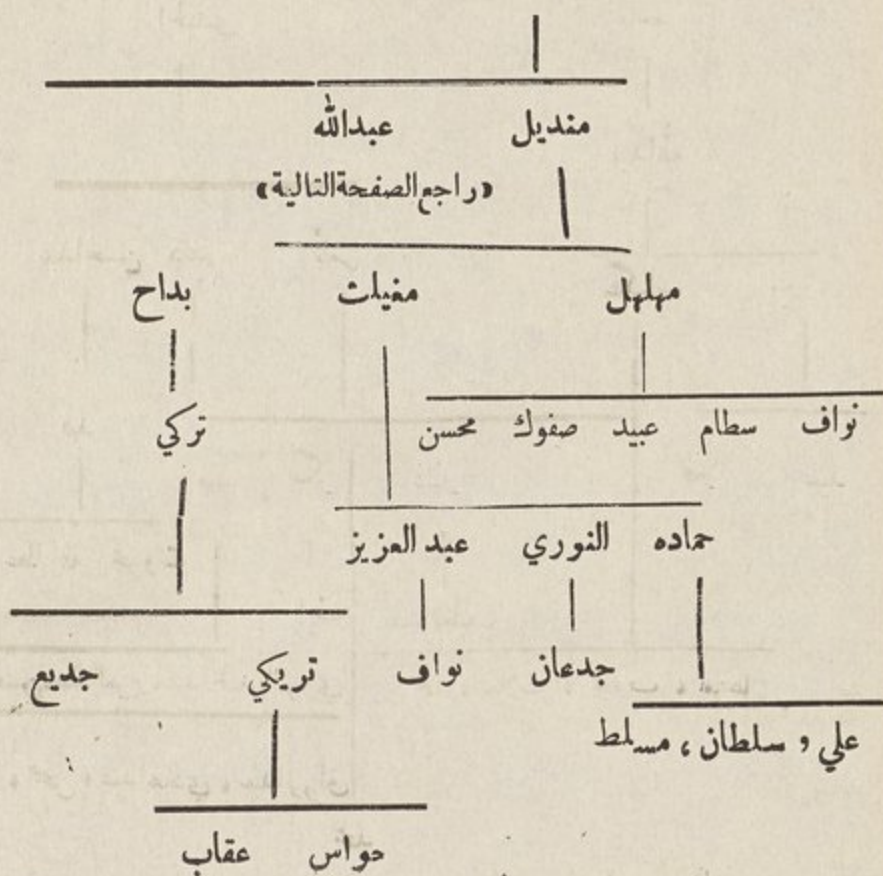 منديل عبدالله
«راجع الصفحة التالية»
مهلهل مغيلث بداح
نواف سطام عبيد صفوك محسن تركي
حماده النوري عبد العزيز
جدعان نواف تريكي جديع
علي و سلطان ، مسلط
حواس عقاب